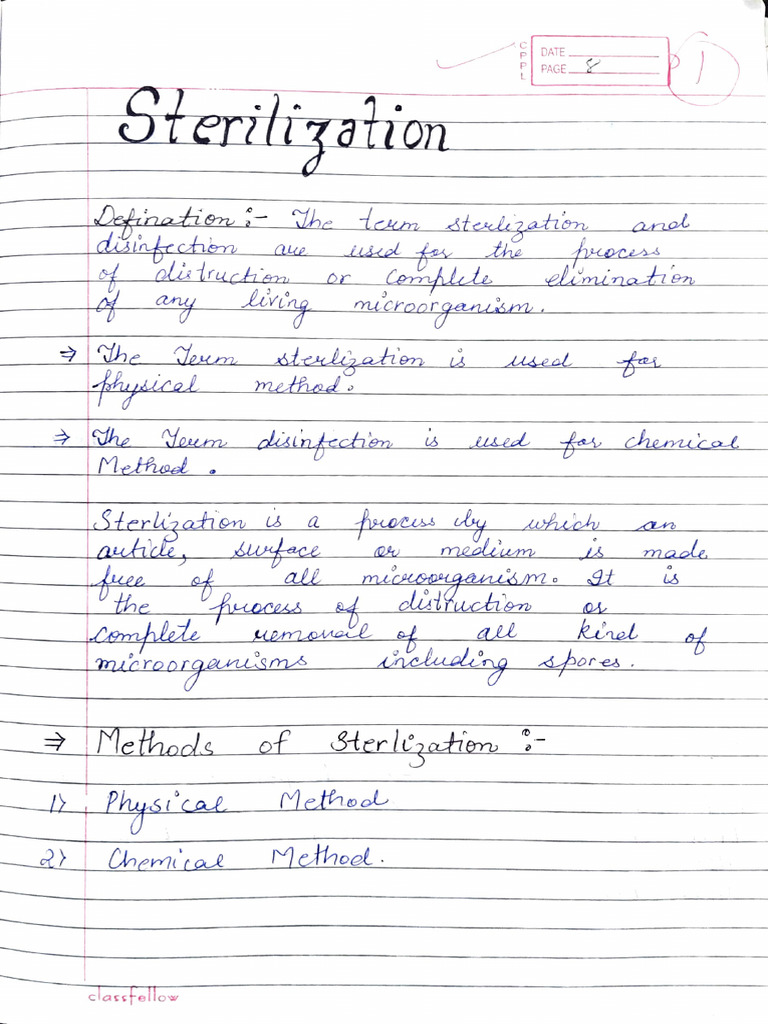 CPPL
DATE
PAGE 8
1
Sterilization
Defination :- The term sterlization and
disinfection are used for the process
of distruction or complete elimination
of any living microorganism.
⇒ The Term sterlization is used for
physical method.
⇒ The Term disinfection is used for chemical
Method.
Sterlization is a process by which an
article, surface or medium is made
free of all microorganism. It is
the process of distruction or
complete removal of all kind of
microorganisms including spores.
⇒ Methods of Sterlization :-
1) Physical Method
2) Chemical Method.
classfellow